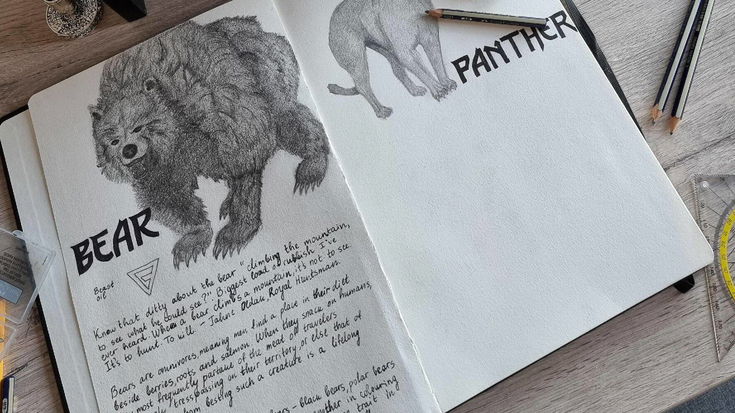 BEAR
Beast
oil
Know that ditty about the bear "climbing the mountain,
to see what he could see?" Biggest load of rubbish I've
ever heard. When a bear climbs a mountain, it's not to see.
It's to hunt. To kill. - Jahne Oldak, Royal Huntsman
Bears are omnivores, meaning men find a place in their diet
beside berries, roots and salmon. When they snack on humans,
most frequently partake of the meat of travellers
tresspassing on their territory, or else that of
whom besting such a creature is a lifelong
- black bears, polar bears
in colouring
in
PANTHER